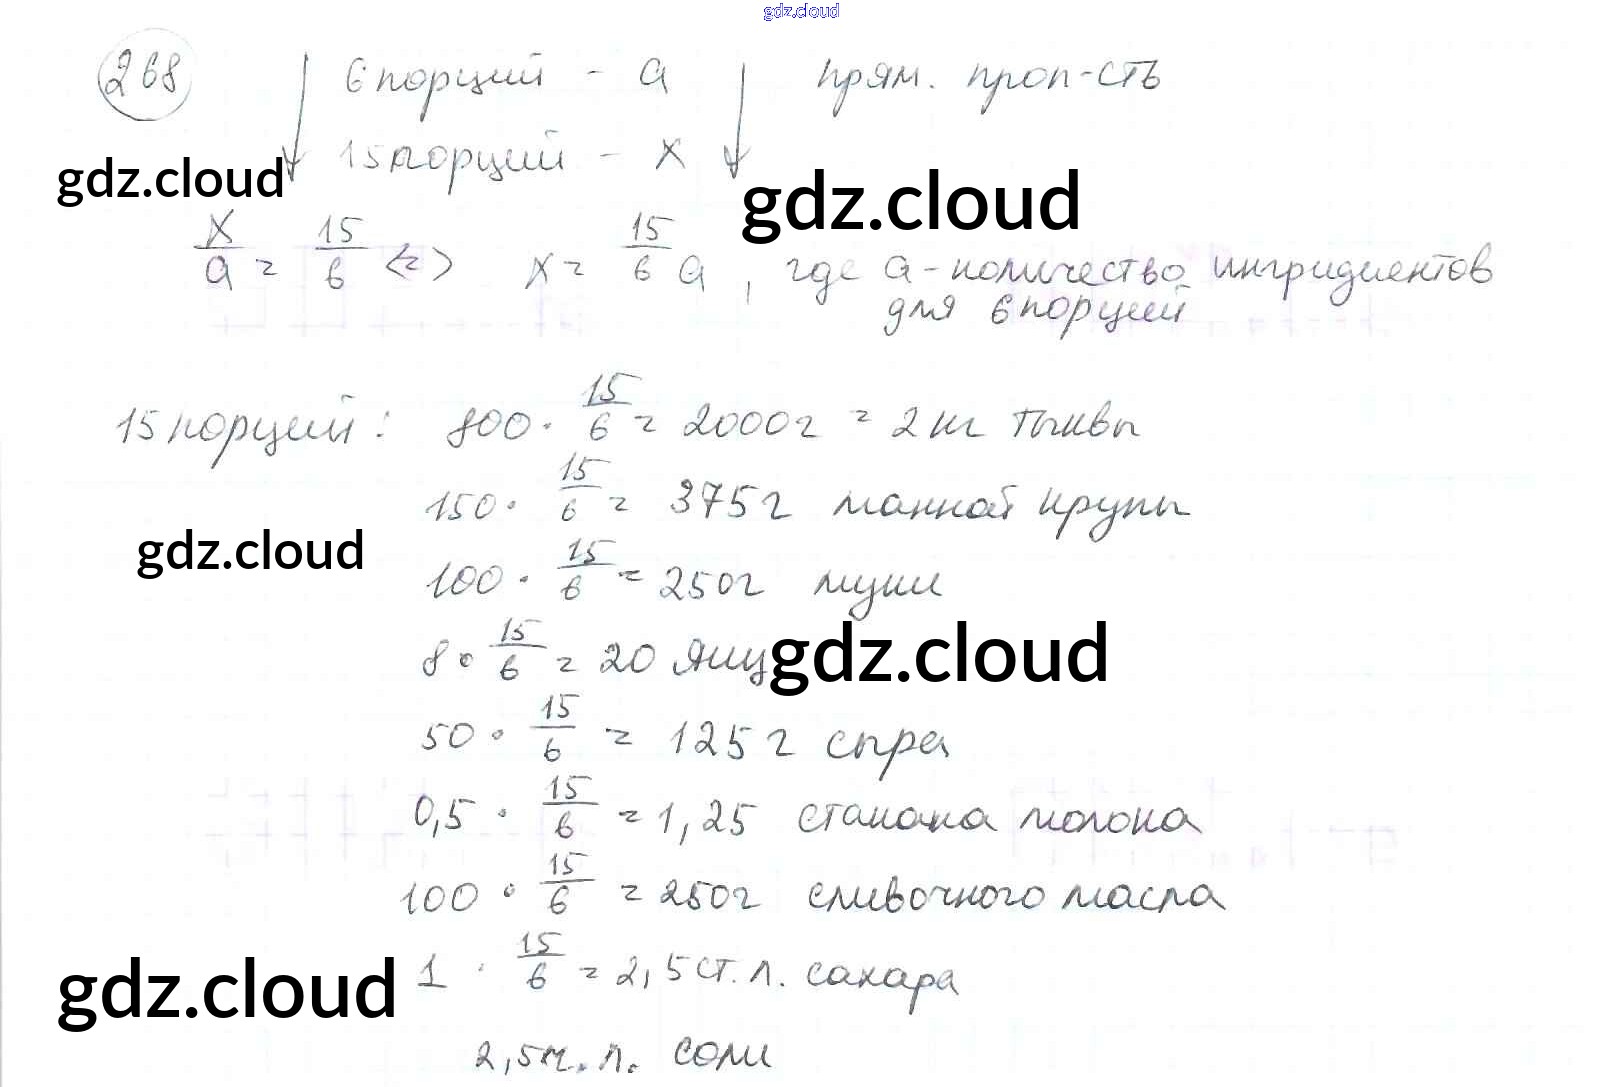 gdz.cloud
268 6 порций - a прям. проп-сть
15 порций - x
gdz.cloud gdz.cloud
x/a = 15/6 <=> x = 15/6 a, где a - количество ингридиентов
для 6 порций
15 порций: 800 · 15/6 = 2000г = 2 кг тыквы
150 · 15/6 = 375 г манной крупы
gdz.cloud
100 · 15/6 = 250г муки
8 · 15/6 = 20 яиц gdz.cloud
50 · 15/6 = 125 г сыра
0,5 · 15/6 = 1,25 стакана молока
100 · 15/6 = 250г сливочного масла
gdz.cloud 1 · 15/6 = 2,5 ст. л. сахара
2,5 ч. л. соли